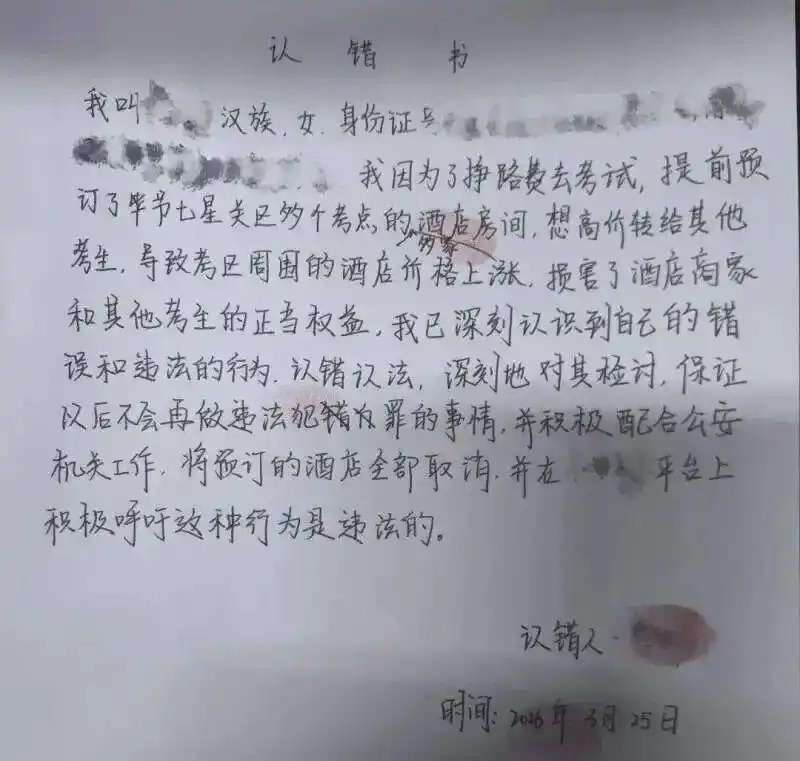 认错书
我叫 汉族,女,身份证号
我因为了挣路费去考试,提前预
订了毕节七星关区多个考点的酒店房间,想高价转给其他
多家
考生,导致考区周围的酒店价格上涨,损害了酒店商家
和其他考生的正当权益,我已深刻认识到自己的错
误和违法的行为.认错认法,深刻地对其检讨,保证
以后不会再做违法犯错 罪的事情,并积极配合公安
机关工作.将预订的酒店全部取消.并在 平台上
积极呼吁这种行为是违法的。
认错人.
时间:2026年3月25日